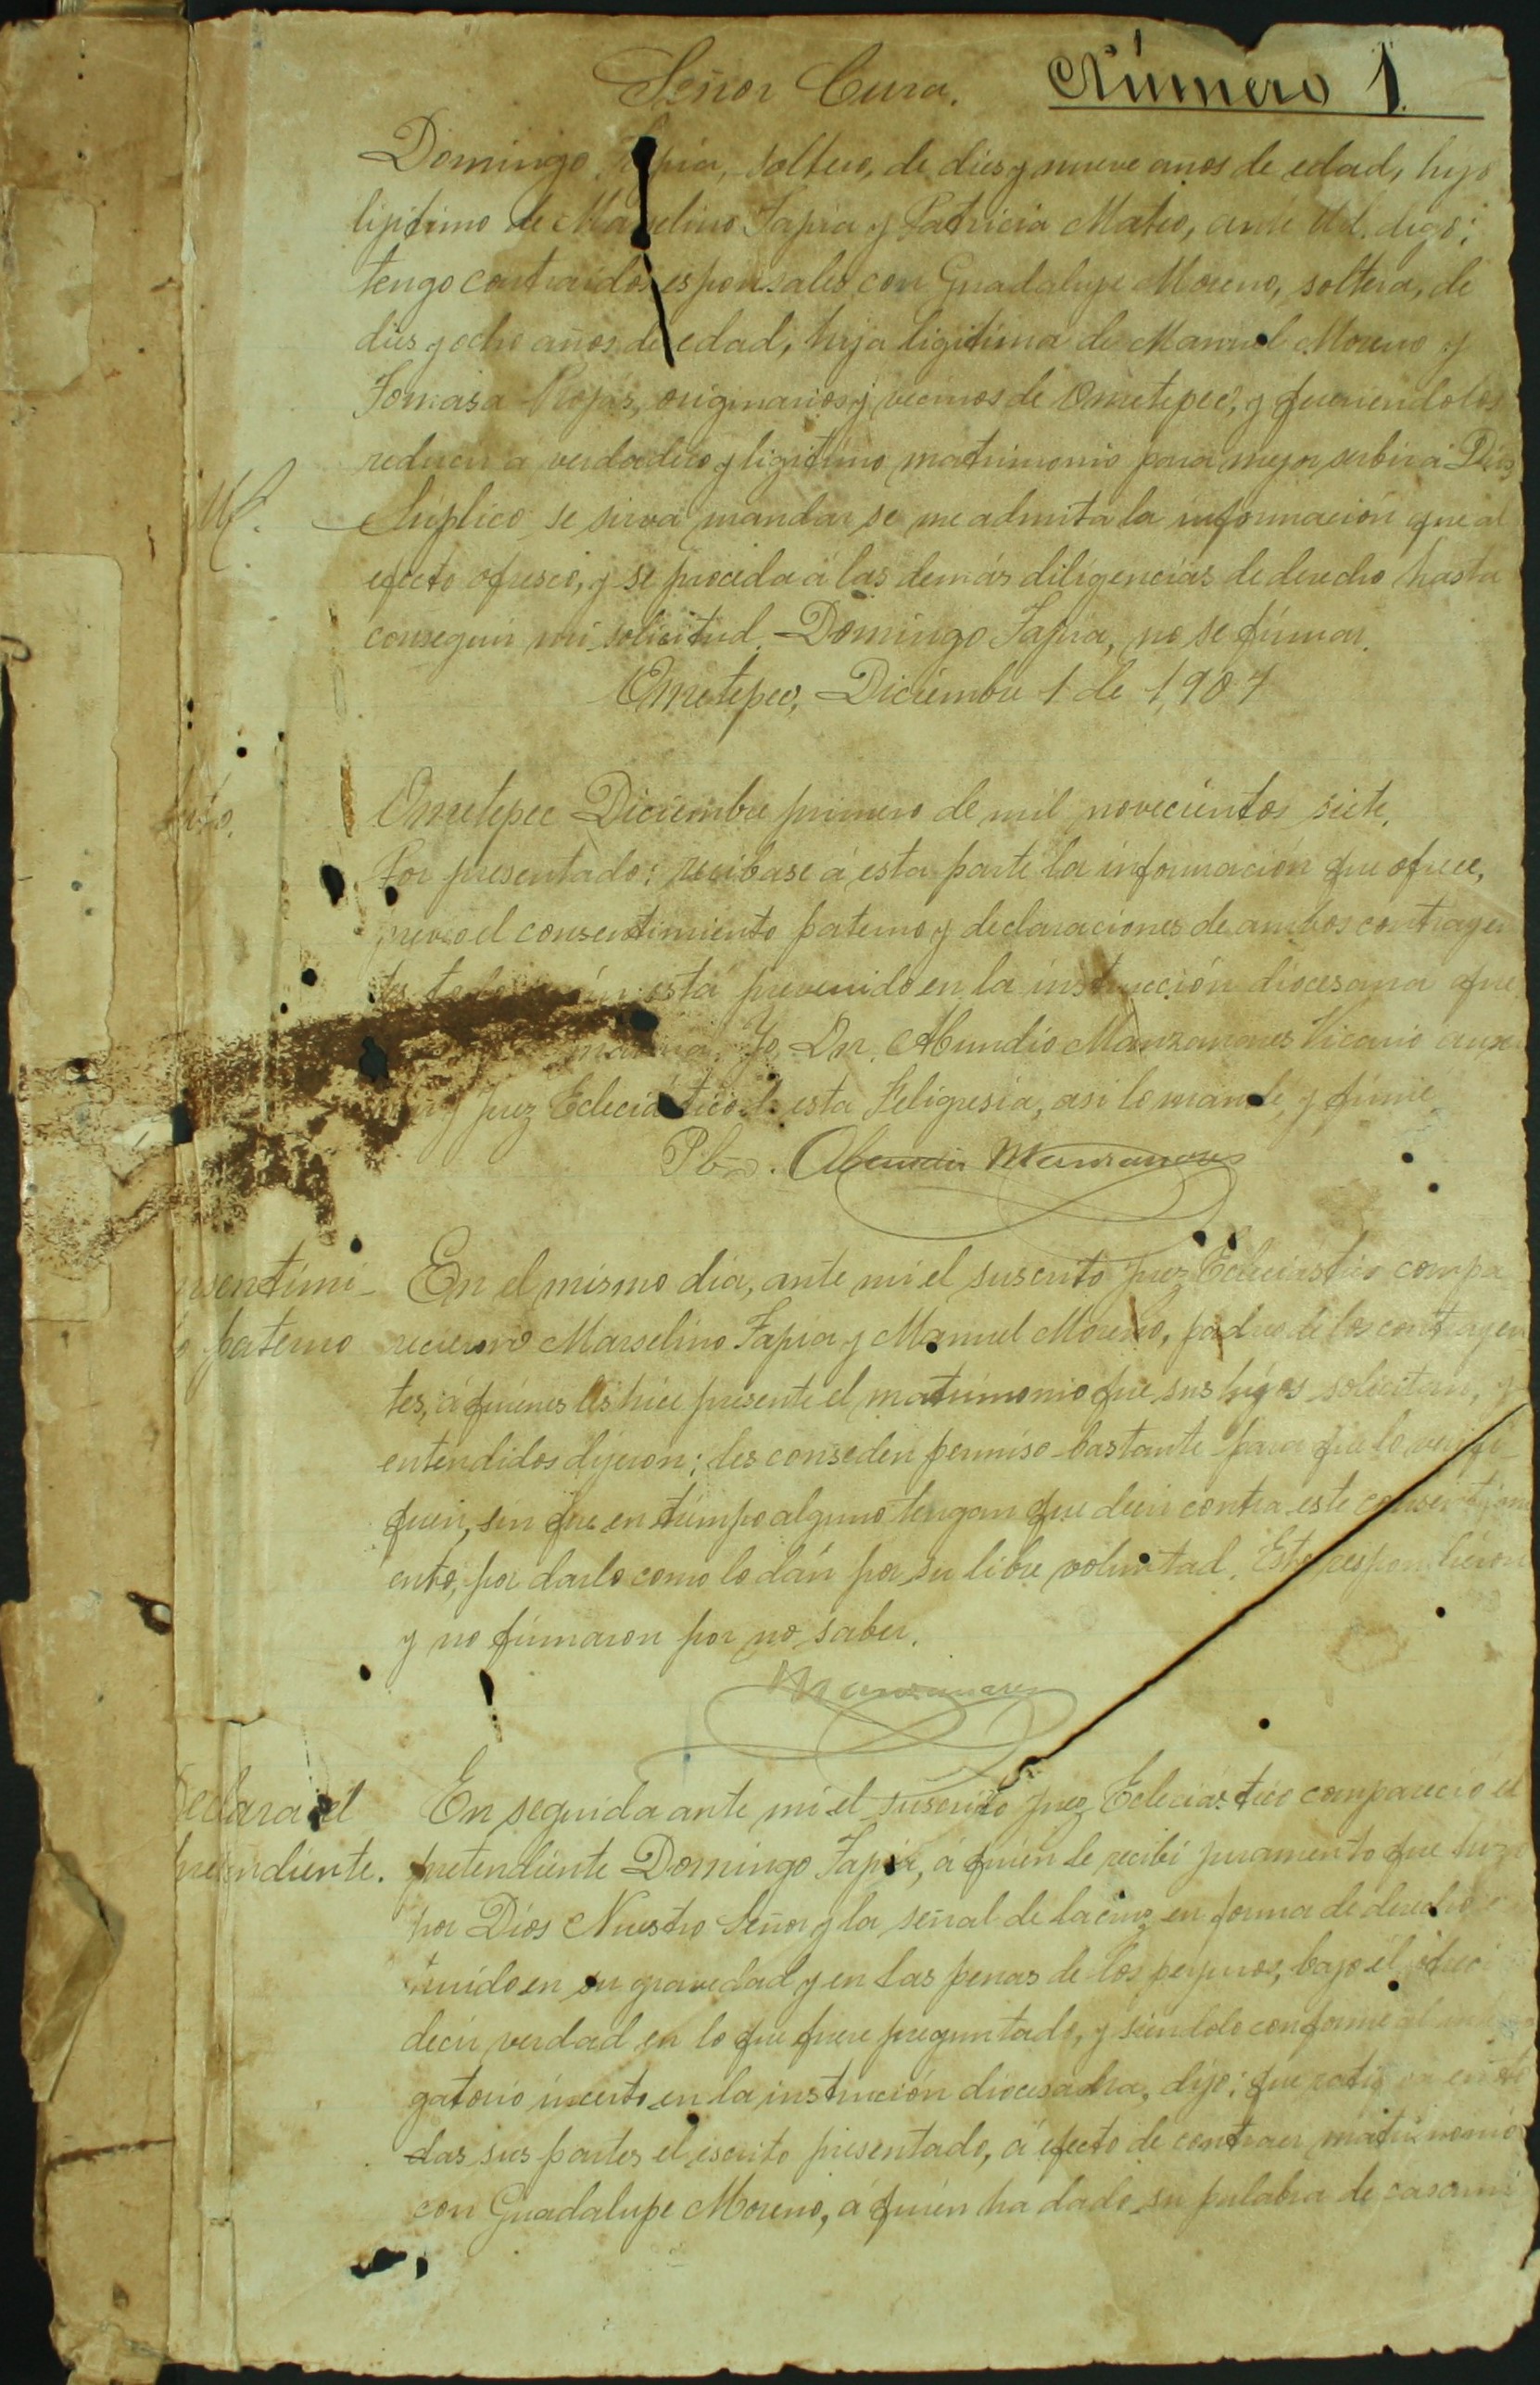 Señor Cura. Número 1.
Domingo Tapia, soltero, de dies y nueve anos de edad, hijo
lijitimo de Marselino Tapia y Patricia Mateo, ante Ud. digo;
tengo contraidos esponsales con Guadalupe Moreno, soltera, de
dies y ocho años de edad, hija ligitima de Manuel Moreno y
Tomasa Rojas, originarios y vecinos de Ometepec, y queriendolos
reducir a verdadero y ligitimo matrimonio para mejor serbir á Dios
Suplico se sirva mandar se me admita la información que al
efecto ofresco, y se proceda á las demás diligencias de derecho hasta
conseguir mi solicitud. Domingo Tapia, no se firmar.
Ometepec, Diciembre 1 de 1,907
Ometepec Diciembre primero de mil novecientos siete.
Por presentado: recibase á esta parte la información que ofrece,
previo el consentimiento paterno y declaraciones de ambos contrayen
tes está prevenido en la instrucción diocesana que
Yo Dn. Abundio Manzanares Vicario auxi
y Juez Ecleciástico de esta Feligresia, asi lo mandé y firmé
Pbro. Abundio Manzanares
nsentimi-
o paterno
En el mismo dia, ante mi el suscrito Juez Eclesiástico compa
recieron Marselino Tapia y Manuel Moreno, padres de los contrayen
tes, á quienes les hice presente el matrimonio que sus hijos solicitan, y
entendidos dijeron; les conseden permiso bastante para que lo verifi-
quen, sin que en tiempo alguno tengan que decir contra este consentimi
ento, por darlo como lo dán por su libre voluntad. Esto respondieron
y no firmaron por no saber.
Manzanares
Declara el
pretendiente.
En seguida ante mi el suscrito Juez Ecleciástico compareció el
pretendiente Domingo Tapia, á quien le recibí juramento que hizo
por Dios Nuestro Señor y la señal de la cruz en forma de derecho
truido en su gravedad y en las penas de los perjuros, bajo el
decir verdad en lo que fuere preguntado, y siendolo conforme al
gatorio incerto en la instrución diocesana, dijo: que en to
das sus partes el escrito presentado, á efecto de contraer matrimonio
con Guadalupe Moreno, á quien ha dado su palabra de casami